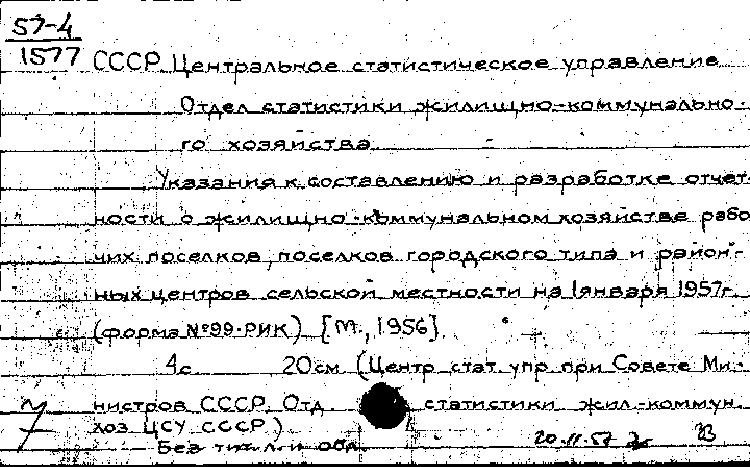 57-4
1577 СССР Центральное статистическое управление
Отдел статистики жилищно-коммунально-
го хозяйства
Указания к составлению и разработке отчет-
ности о жилищно-коммунальном хозяйстве рабо
чих поселков, поселков городского типа и район-
ных центров сельской местности на 1 января 1957г.
(форма №99-РИК) [М., 1956]
4с. 20см (Центр. стат. упр. при Совете Ми-
нистров СССР. Отд. статистики жил.-коммун.
хоз ЦСУ СССР.)
Без тит. л. и обл.
7
20.II.57 В